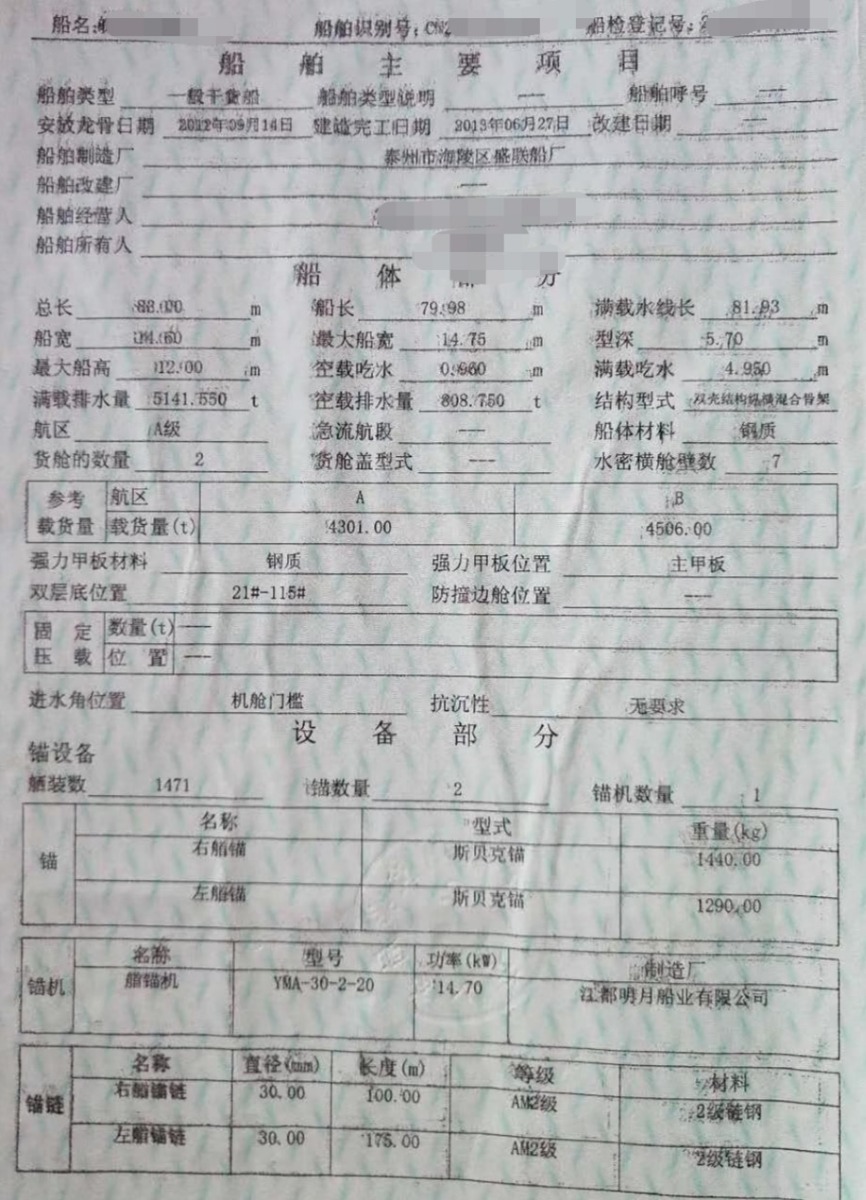 船名:
船舶识别号: CN2
船检登记号: 2
船舶主要项目
船舶类型 一般干货船 船舶类型说明 --- 船舶呼号 ---
安放龙骨日期 2012年09月14日 建造完工日期 2013年06月27日 改建日期 ---
船舶制造厂 泰州市海陵区盛联船厂
船舶改建厂 ---
船舶经营人
船舶所有人
船体部分
总长 88.00 m 船长 79.98 m 满载水线长 81.93 m
船宽 14.60 m 最大船宽 14.75 m 型深 5.70 m
最大船高 12.00 m 空载吃水 0.960 m 满载吃水 4.950 m
满载排水量 5141.550 t 空载排水量 808.750 t 结构型式 双壳结构纵横混合骨架
航区 A级 急流航段 --- 船体材料 钢质
货舱的数量 2 货舱盖型式 --- 水密横舱壁数 7
参考载货量 航区 A B
载货量(t) 4301.00 4506.00
强力甲板材料 钢质 强力甲板位置 主甲板
双层底位置 21#-115# 防撞边舱位置 ---
固定压载 数量(t) ---
位置 ---
进水角位置 机舱门槛 抗沉性 无要求
设备部分
锚设备
舾装数 1471 锚数量 2 锚机数量 1
锚 名称 型式 重量(kg)
右艏锚 斯贝克锚 1440.00
左艏锚 斯贝克锚 1290.00
锚机 名称 型号 功率(kW) 制造厂
艏锚机 YMA-30-2-20 14.70 江都明月船业有限公司
锚链 名称 直径(mm) 长度(m) 等级 材料
右艏锚链 30.00 100.00 AM2级 2级链钢
左艏锚链 30.00 175.00 AM2级 2级链钢